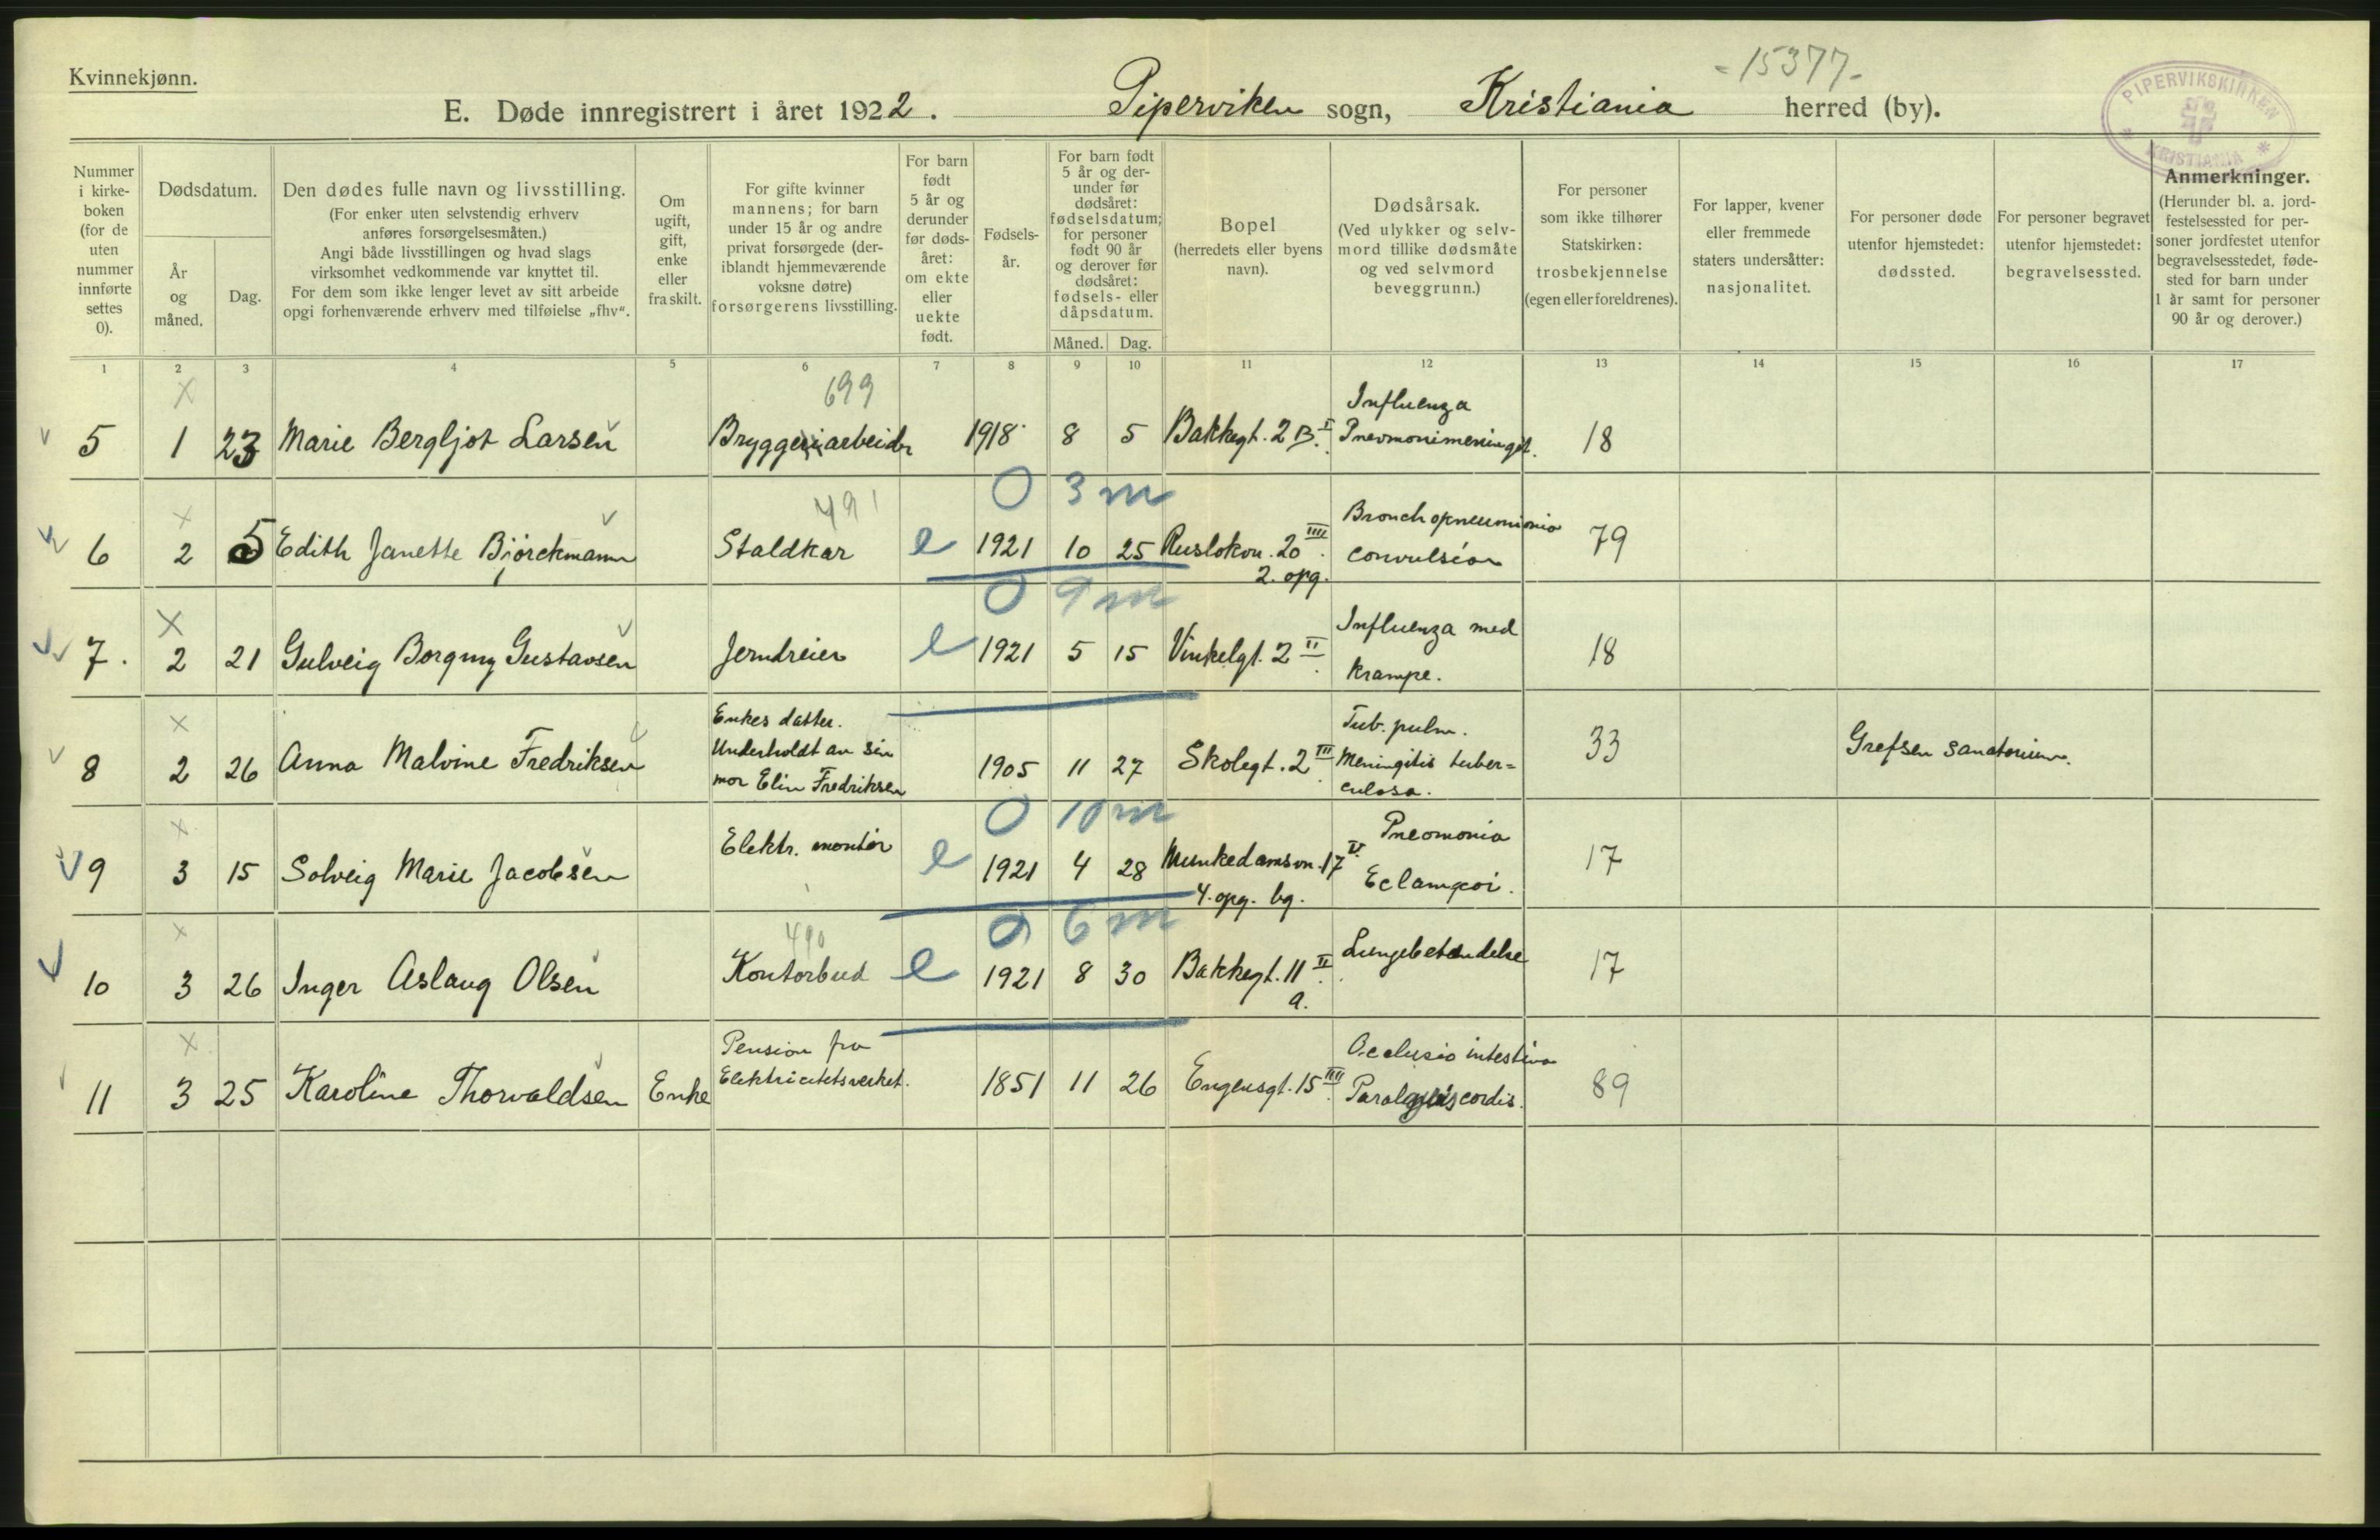 Kvinnekjønn.
- 15377 -
E. Døde innregistrert i året 1922. Piperviken sogn, Kristiania herred (by).
PIPERVIKSKIRKEN * KRISTIANIA *
Nummer i kirke-boken (for de uten nummer innførte settes 0).
Dødsdatum.
År og måned.
Dag.
Den dødes fulle navn og livsstilling.
(For enker uten selvstendig erhverv anføres forsørgelsesmåten.)
Angi både livsstillingen og hvad slags virksomhet vedkommende var knyttet til.
For dem som ikke lenger levet av sitt arbeide opgi forhenværende erhverv med tilføielse „fhv“.
Om ugift, gift, enke eller fraskilt.
For gifte kvinner mannens; for barn under 15 år og andre privat forsørgede (deriblandt hjemmeværende voksne døtre) forsørgerens livsstilling.
For barn født 5 år og derunder før døds-året: om ekte eller uekte født.
Fødsels-år.
For barn født 5 år og der-under før dødsåret: fødselsdatum; for personer født 90 år og derover før dødsåret: fødsels- eller dåpsdatum.
Måned. Dag.
Bopel
(herredets eller byens navn).
Dødsårsak.
(Ved ulykker og selv-mord tillike dødsmåte og ved selvmord beveggrunn.)
For personer som ikke tilhører Statskirken: trosbekjennelse (egen eller foreldrenes).
For lapper, kvener eller fremmede staters undersåtter: nasjonalitet.
For personer døde utenfor hjemstedet: dødssted.
For personer begravet utenfor hjemstedet: begravelsessted.
Anmerkninger.
(Herunder bl. a. jord-festelsessted for per-soner jordfestet utenfor begravelsesstedet, føde-sted for barn under 1 år samt for personer 90 år og derover.)
1 2 3 4 5 6 7 8 9 10 11 12 13 14 15 16 17
699
5 1 23 Marie Bergljot Larsen Bryggeriarbeider 1918 8 5 Bakkegt. 2 B. I Influenza Pnevmonimeningit. 18
0 3 m
491
6 2 5 Edith Janette Bjørckmann Staldkar e 1921 10 25 Ruslokvn. 20 IIII 2. opg. Bronchopneumonia convulsion 79
0 9 m
7. 2 21 Gulveig Borgny Gustavsen Jerndreier e 1921 5 15 Vinkelgt. 2 II Influenza med krampe. 18
8 2 26 Anna Malvine Fredriksen Enkes datter. Underholdt av sin mor Elin Fredriksen 1905 11 27 Skolegt. 2 III Tub. pulm. Meningitis tuber=culosa. 33 Grefsen sanatorium.
0 10 m
9 3 15 Solveig Marie Jacobsen Elektr. montør e 1921 4 28 Munkedamsvn. 17 V 4. opg. bg. Pneomonia 17
0 6 m
490
10 3 26 Inger Aslaug Olsen Kontorbud e 1921 8 30 Bakkegt. 11 II a. Lungebetændelse 17
11 3 25 Karoline Thorvaldsen Enke Pension fra Elektricitetsverket. 1851 11 26 Engensgt. 15 III Occlusio intestina cordis. 89